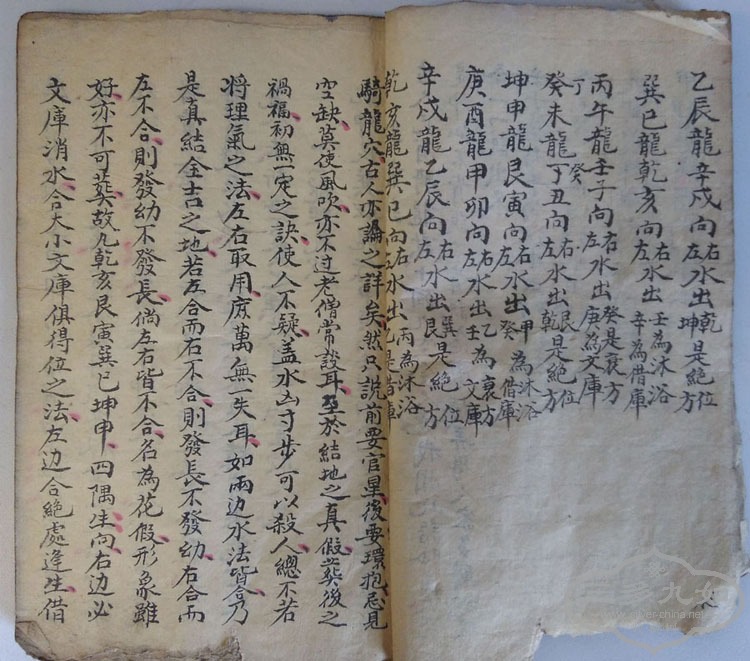 乙辰龍辛戌向右左水出乾坤是絕位方
巽巳龍乾亥向右左水出壬為沐浴辛為借庫
丙午龍壬子向右左水出癸是衰方庚為文庫
丁癸未龍癸丁丑向右左水出艮乾是絕位方
坤申龍艮寅向右左水出甲為沐浴癸借庫
庚酉龍甲卯向右左水出乙為衰方壬文庫
辛戌龍乙辰向右左水出巽艮是絕位方
乾亥龍巽巳向右左水出丙為沐浴乙是借庫
騎龍穴古人亦論之詳矣然只説前要官星後要環抱忌見
空缺莫使風吹亦不过老僧常談耳至於結地之真假葬後之
禍福初無一定之訣使人不疑盖水凶寸步可以殺人總不若
将理氣之法左右取用庶萬無一失耳如兩边水法皆合乃
是真結全吉之地若左合而右不合則發長不發幼右合而
左不合則發幼不發長倘左右皆不合名為花假形象雖
好亦不可葬故凡乾亥艮寅巽巳坤申四隅生向右边必
文庫消水合大小文庫俱得位之法左边合絕處逢生借
九女